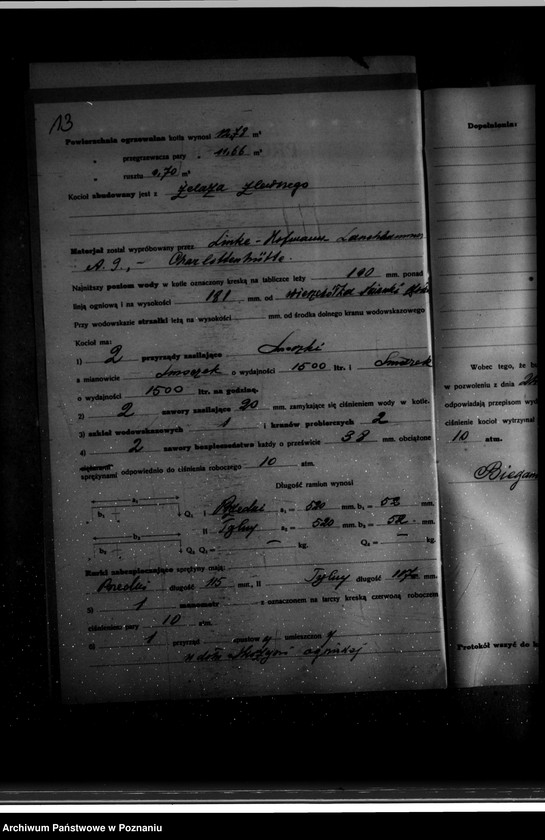 13
Powierzchnia ogrzewalna kotła wynosi 12,78 m²
„ przegrzewacza pary „ 11,66 m²
„ rusztu 0,70 m²
Kocioł zbudowany jest z żelaza zlewnego
Materjał został wypróbowany przez Linke-Hofmann Lauchhammer
A. G., - Charlottenhütte.
Najniższy poziom wody w kotle oznaczony kreską na tabliczce leży 190 mm. ponad
linją ogniową i na wysokości 181 mm. od wierzchołka
Przy wodowskazie strzałki leżą na wysokości mm. od środka dolnego krana wodowskazowego
Kocioł ma:
1) 2 przyrządy zasilające Smoczki
a mianowicie Smoczek o wydajności 1500 ltr. i Smoczek
o wydajności 1500 ltr. na godzinę.
2) 2 zawory zasilające 20 mm. zamykające się ciśnieniem wody w kotle.
3) szkieł wodowskazowych 1 i kranów probierczych 2
4) 2 zawory bezpieczeństwa każdy o prześwicie 38 mm. obciążone
sprężynami odpowiednio do ciśnienia roboczego 10 atm.
Długość ramion wynosi
a₁ b₁ Q₁ I Przedni a₁ = 520 mm. b₁ = 52 mm.
II Tylny a₂ = 520 mm. b₂ = 52 mm.
a₂ b₂ Q₂ Q₁ = — kg. Q₂ = — kg.
Rurki zabezpieczające sprężyny mają:
Przedni długość 115 mm., II Tylny długość mm.
5) 1 manometr z oznaczonem na tarczy kreską czerwoną roboczem
ciśnieniem pary 10 atm.
6) 1 przyrząd umieszczony
w dole skrzyni ogniskej
Dopełnienia:
Wobec tego, że
w pozwoleniu z dnia
odpowiadają przepisom
ciśnienie kocioł wytrzymał
10 atm.
Protokół wszyć do
Archiwum Państwowe w Poznaniu